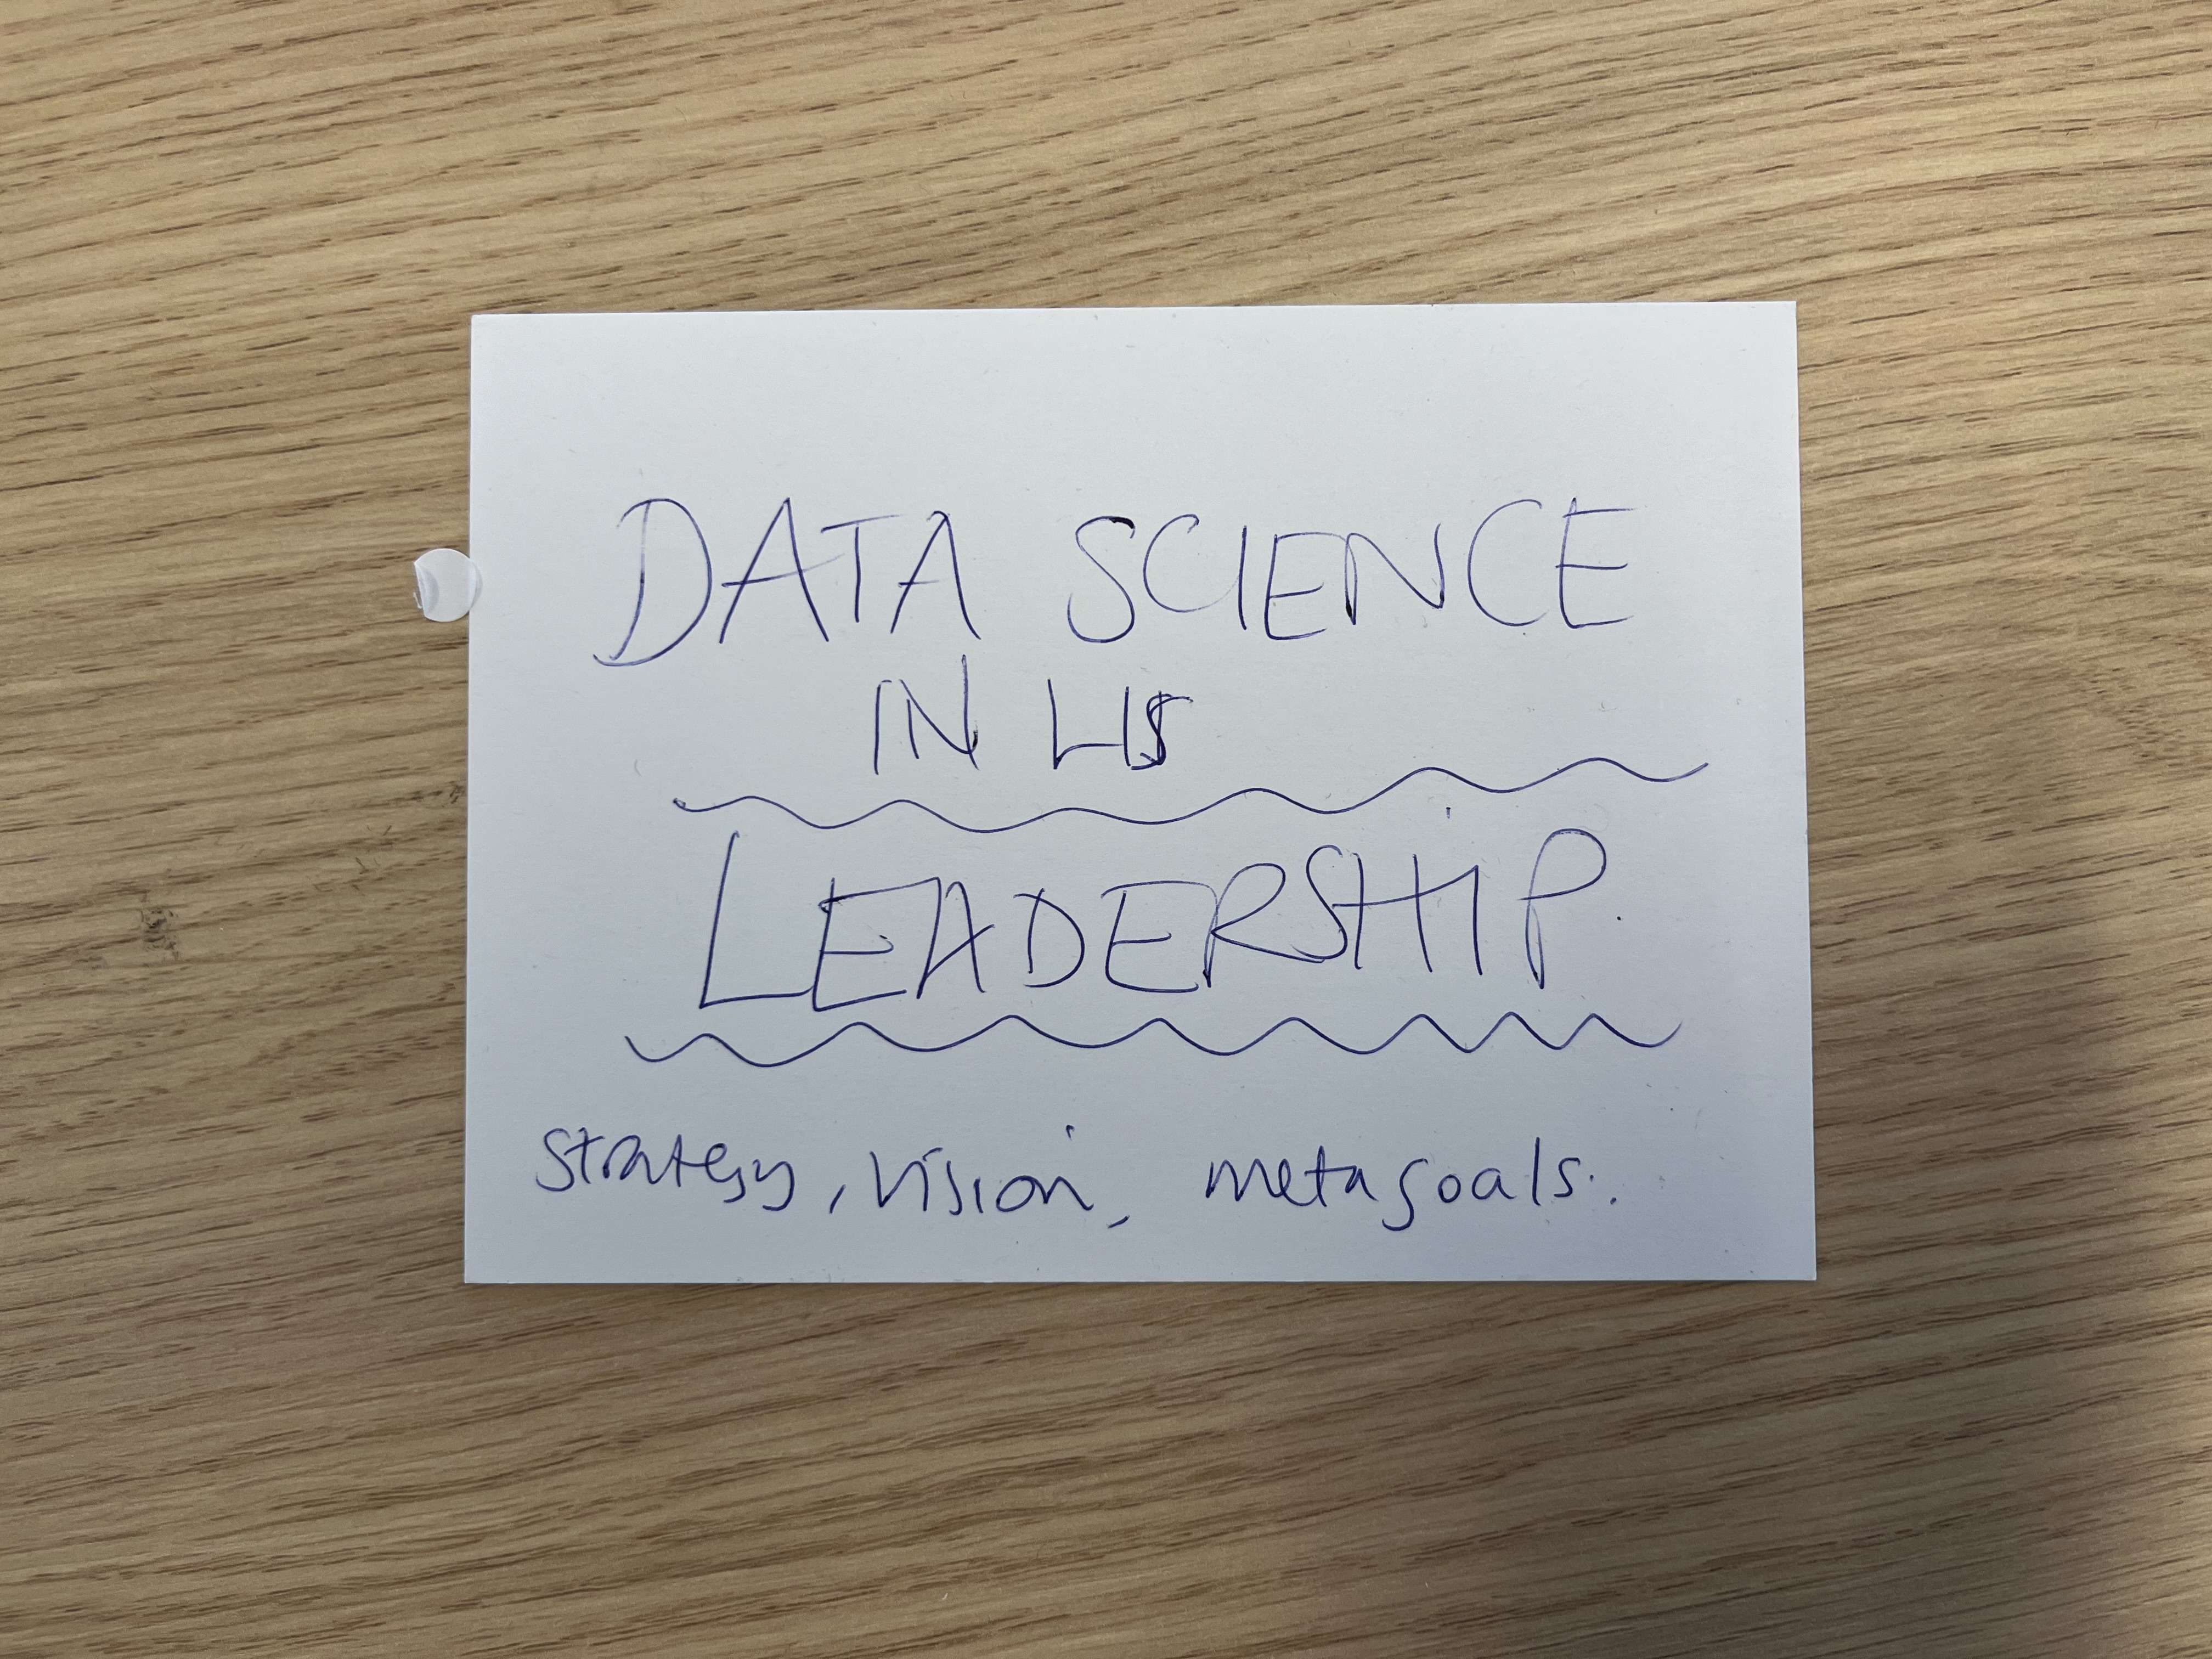 DATA SCIENCE
IN LIS
LEADERSHIP.
Strategy, Vision, metagoals.